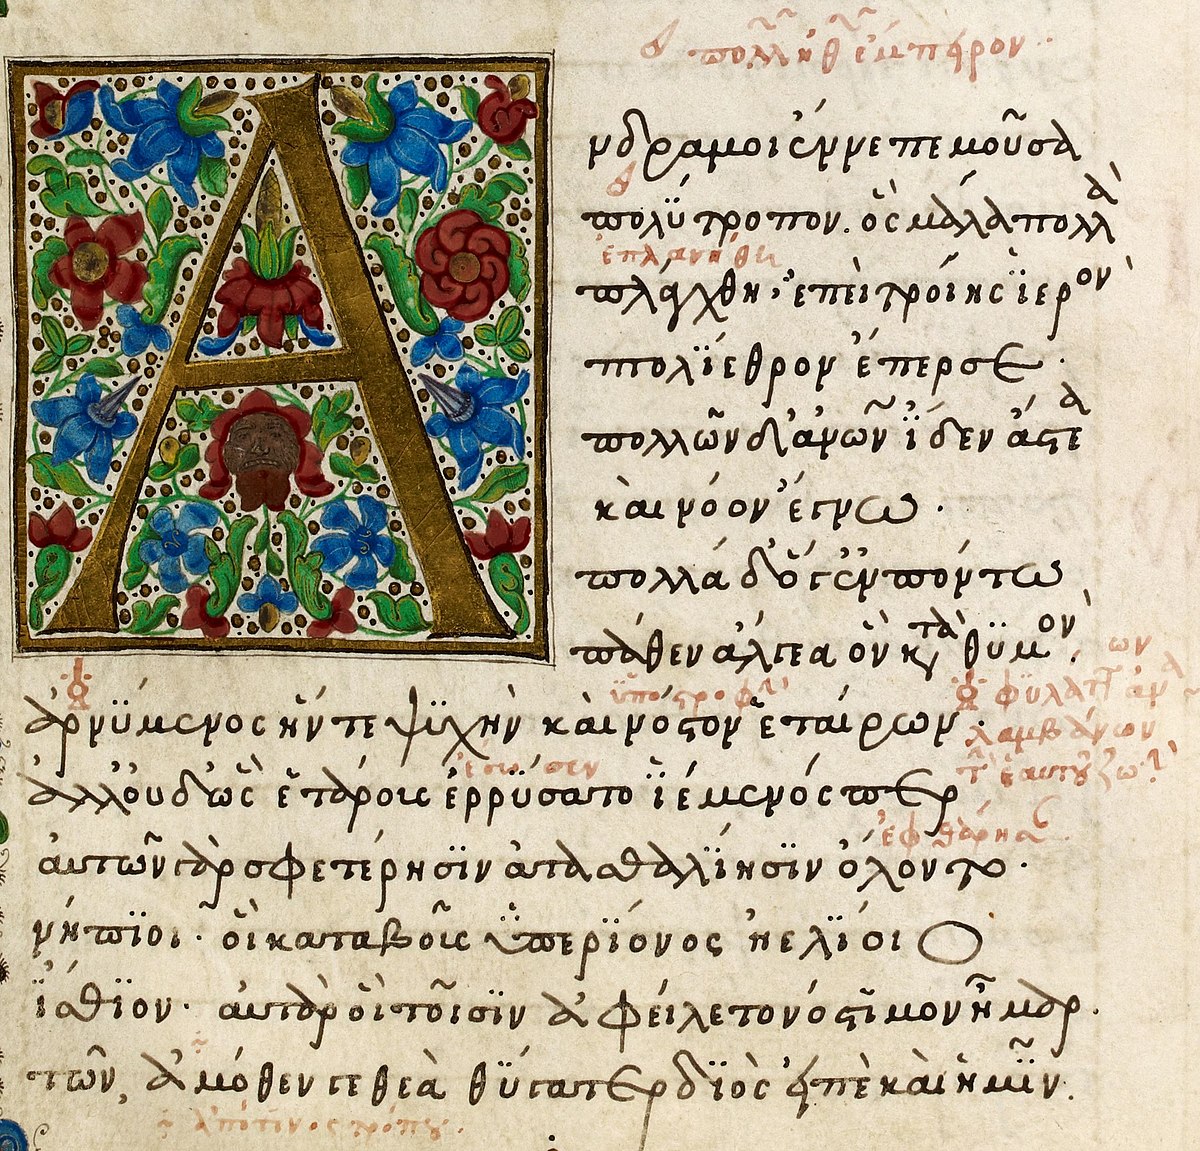 πολλ ἔμπειρον
Ανδρα μοι ἔννεπε μοῦσα
πολύτροπον. ὃς μάλα πολλὰ
ἐπλανήθη
πλάγχθη, ἐπεὶ τροίης ϊερὸν
πτολίεθρον ἔπερσε.
πολλῶν δ' ἀνθρώπων ἴδεν ἄστεα
καὶ νόον ἔγνω.
πολλὰ δ' ὅγ' ἐν πόντω
πάθεν ἄλγεα ὃν κατὰ θϋμὸν.
ὑποστροφὴν φϋλάττων
ἀρνϋμενος ἥν τε ψϋχὴν καὶ νόστον ἑταίρων.
λαμβάνων
ἔσωσεν
ἀλλ' οὐδ' ὣς ἑτάροις ἐρρϋσατο ϊέμενός περ
ἐφθάρησαν
αὐτῶν γὰρ σφετέρησϊν ἀτασθαλίησϊν ὄλοντο.
νήπϊοι. οἳ κατα βοῦς ϋπερϊονος ἠελϊοιο
ϊσθϊον. αὐτὰρ ὃ τοῖσϊν ἀφείλετο νόστιμον ἦμαρ.
τῶν, ἁμόθεν γε θεὰ θϋγατερ διὸς εἰπὲ καὶ ἡμῖν.
ἀπό τινος τρόπου.